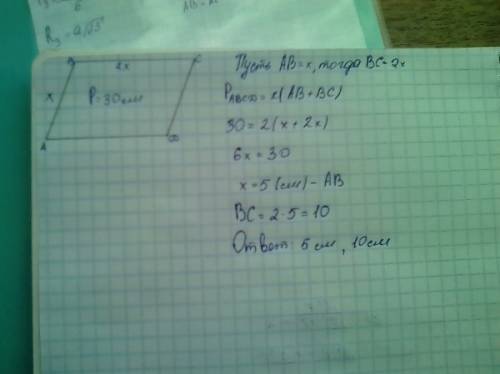 B 2x C
x P=30см
A D
Пусть AB=x, тогда BC=2x
P ABCD = 2(AB+BC)
30=2(x+2x)
6x=30
x=5(см)-AB
BC=2·5=10
Ответ: 5см, 10см